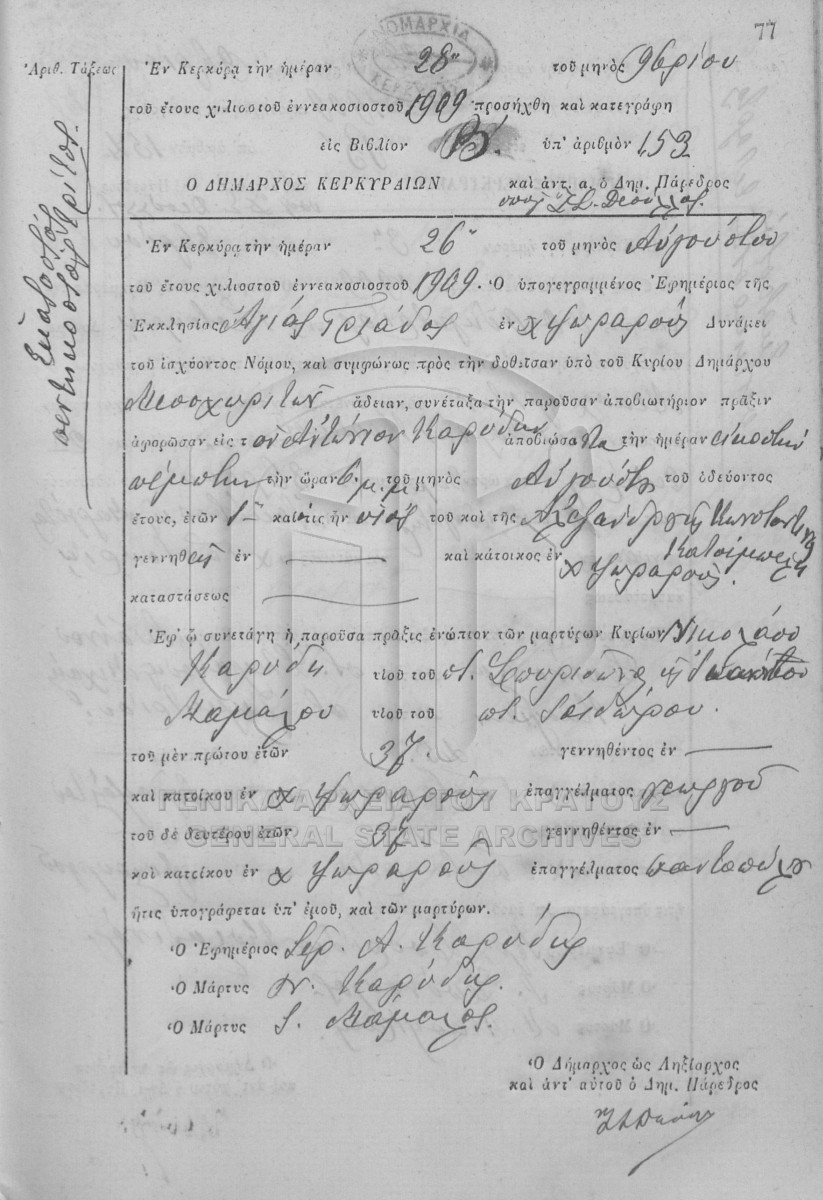 77
ΝΟΜΑΡΧΙΑ
Ἀριθ. Τάξεως
Ἑκατοστός
πεντηκοστός τρίτος.
Ἐν Κερκύρᾳ τὴν ἡμέραν 28ην τοῦ μηνὸς 9βρίου
τοῦ ἔτους χιλιοστοῦ ἐννεακοσιοστοῦ 1909 προσήχθη καὶ κατεγράφη
εἰς Βιβλίον Β'. ὑπ' ἀριθμὸν 153
Ὁ ΔΗΜΑΡΧΟΣ ΚΕΡΚΥΡΑΙΩΝ καὶ ἀντ. α. ὁ Δημ. Πάρεδρος
Ἐν Κερκύρᾳ τὴν ἡμέραν 26 τοῦ μηνὸς Αὐγούστου
τοῦ ἔτους χιλιοστοῦ ἐννεακοσιοστοῦ 1909. Ὁ ὑπογεγραμμένος Ἐφημέριος τῆς
Ἐκκλησίας Ἁγίας Τριάδος ἐν χ Ψωραροῦς Δυνάμει
τοῦ ἰσχύοντος Νόμου, καὶ συμφώνως πρὸς τὴν δοθεῖσαν ὑπὸ τοῦ Κυρίου Δημάρχου
Μεσοχωριτῶν ἄδειαν, συνέταξα τὴν παροῦσαν ἀποβιωτήριον πρᾶξιν
ἀφορῶσαν εἰς τὸν Ἀντώνιον Καρύδην ἀποβιώσαντα τὴν ἡμέραν εἰκοστὴν
πέμπτην τὴν ὥραν 6 μ.μ. τοῦ μηνὸς Αὐγούστου τοῦ ὁδεύοντος
ἔτους, ἐτῶν 1 καὶ ὅςτις ἦν υἱὸς τοῦ καὶ τῆς Ἀλεξάνδρας Κωνσταντίνου
Κατσίμπελη
γεννηθεὶς ἐν καὶ κάτοικος ἐν χ Ψωραροῦς.
καταστάσεως
Ἐφ' ᾧ συνετάγη ἡ παροῦσα πρᾶξις ἐνώπιον τῶν μαρτύρων Κυρίων Νικολάου
Καρύδη υἱοῦ τοῦ π. Σπυρίδωνος
Μαμάλου υἱοῦ τοῦ π. Ἰσιδώρου.
τοῦ μὲν πρώτου ἐτῶν 37. γεννηθέντος ἐν
καὶ κατοίκου ἐν χ Ψωραροῦς ἐπαγγέλματος γεωργοῦ
τοῦ δὲ δευτέρου ἐτῶν 37 γεννηθέντος ἐν
καὶ κατοίκου ἐν χ Ψωραροῦς ἐπαγγέλματος παντοπώλου
ἥτις ὑπογράφεται ὑπ' ἐμοῦ, καὶ τῶν μαρτύρων.
ΓΕΝΙΚΑ ΑΡΧΕΙΑ ΤΟΥ ΚΡΑΤΟΥΣ
GENERAL STATE ARCHIVES
Ὁ Ἐφημέριος Ἱερ. Α. Καρύδης
Ὁ Μάρτυς Ν. Καρύδης.
Ὁ Μάρτυς Ι. Μάμαλος.
Ὁ Δήμαρχος ὡς Ληξίαρχος
καὶ ἀντ' αὐτοῦ ὁ Δημ. Πάρεδρος